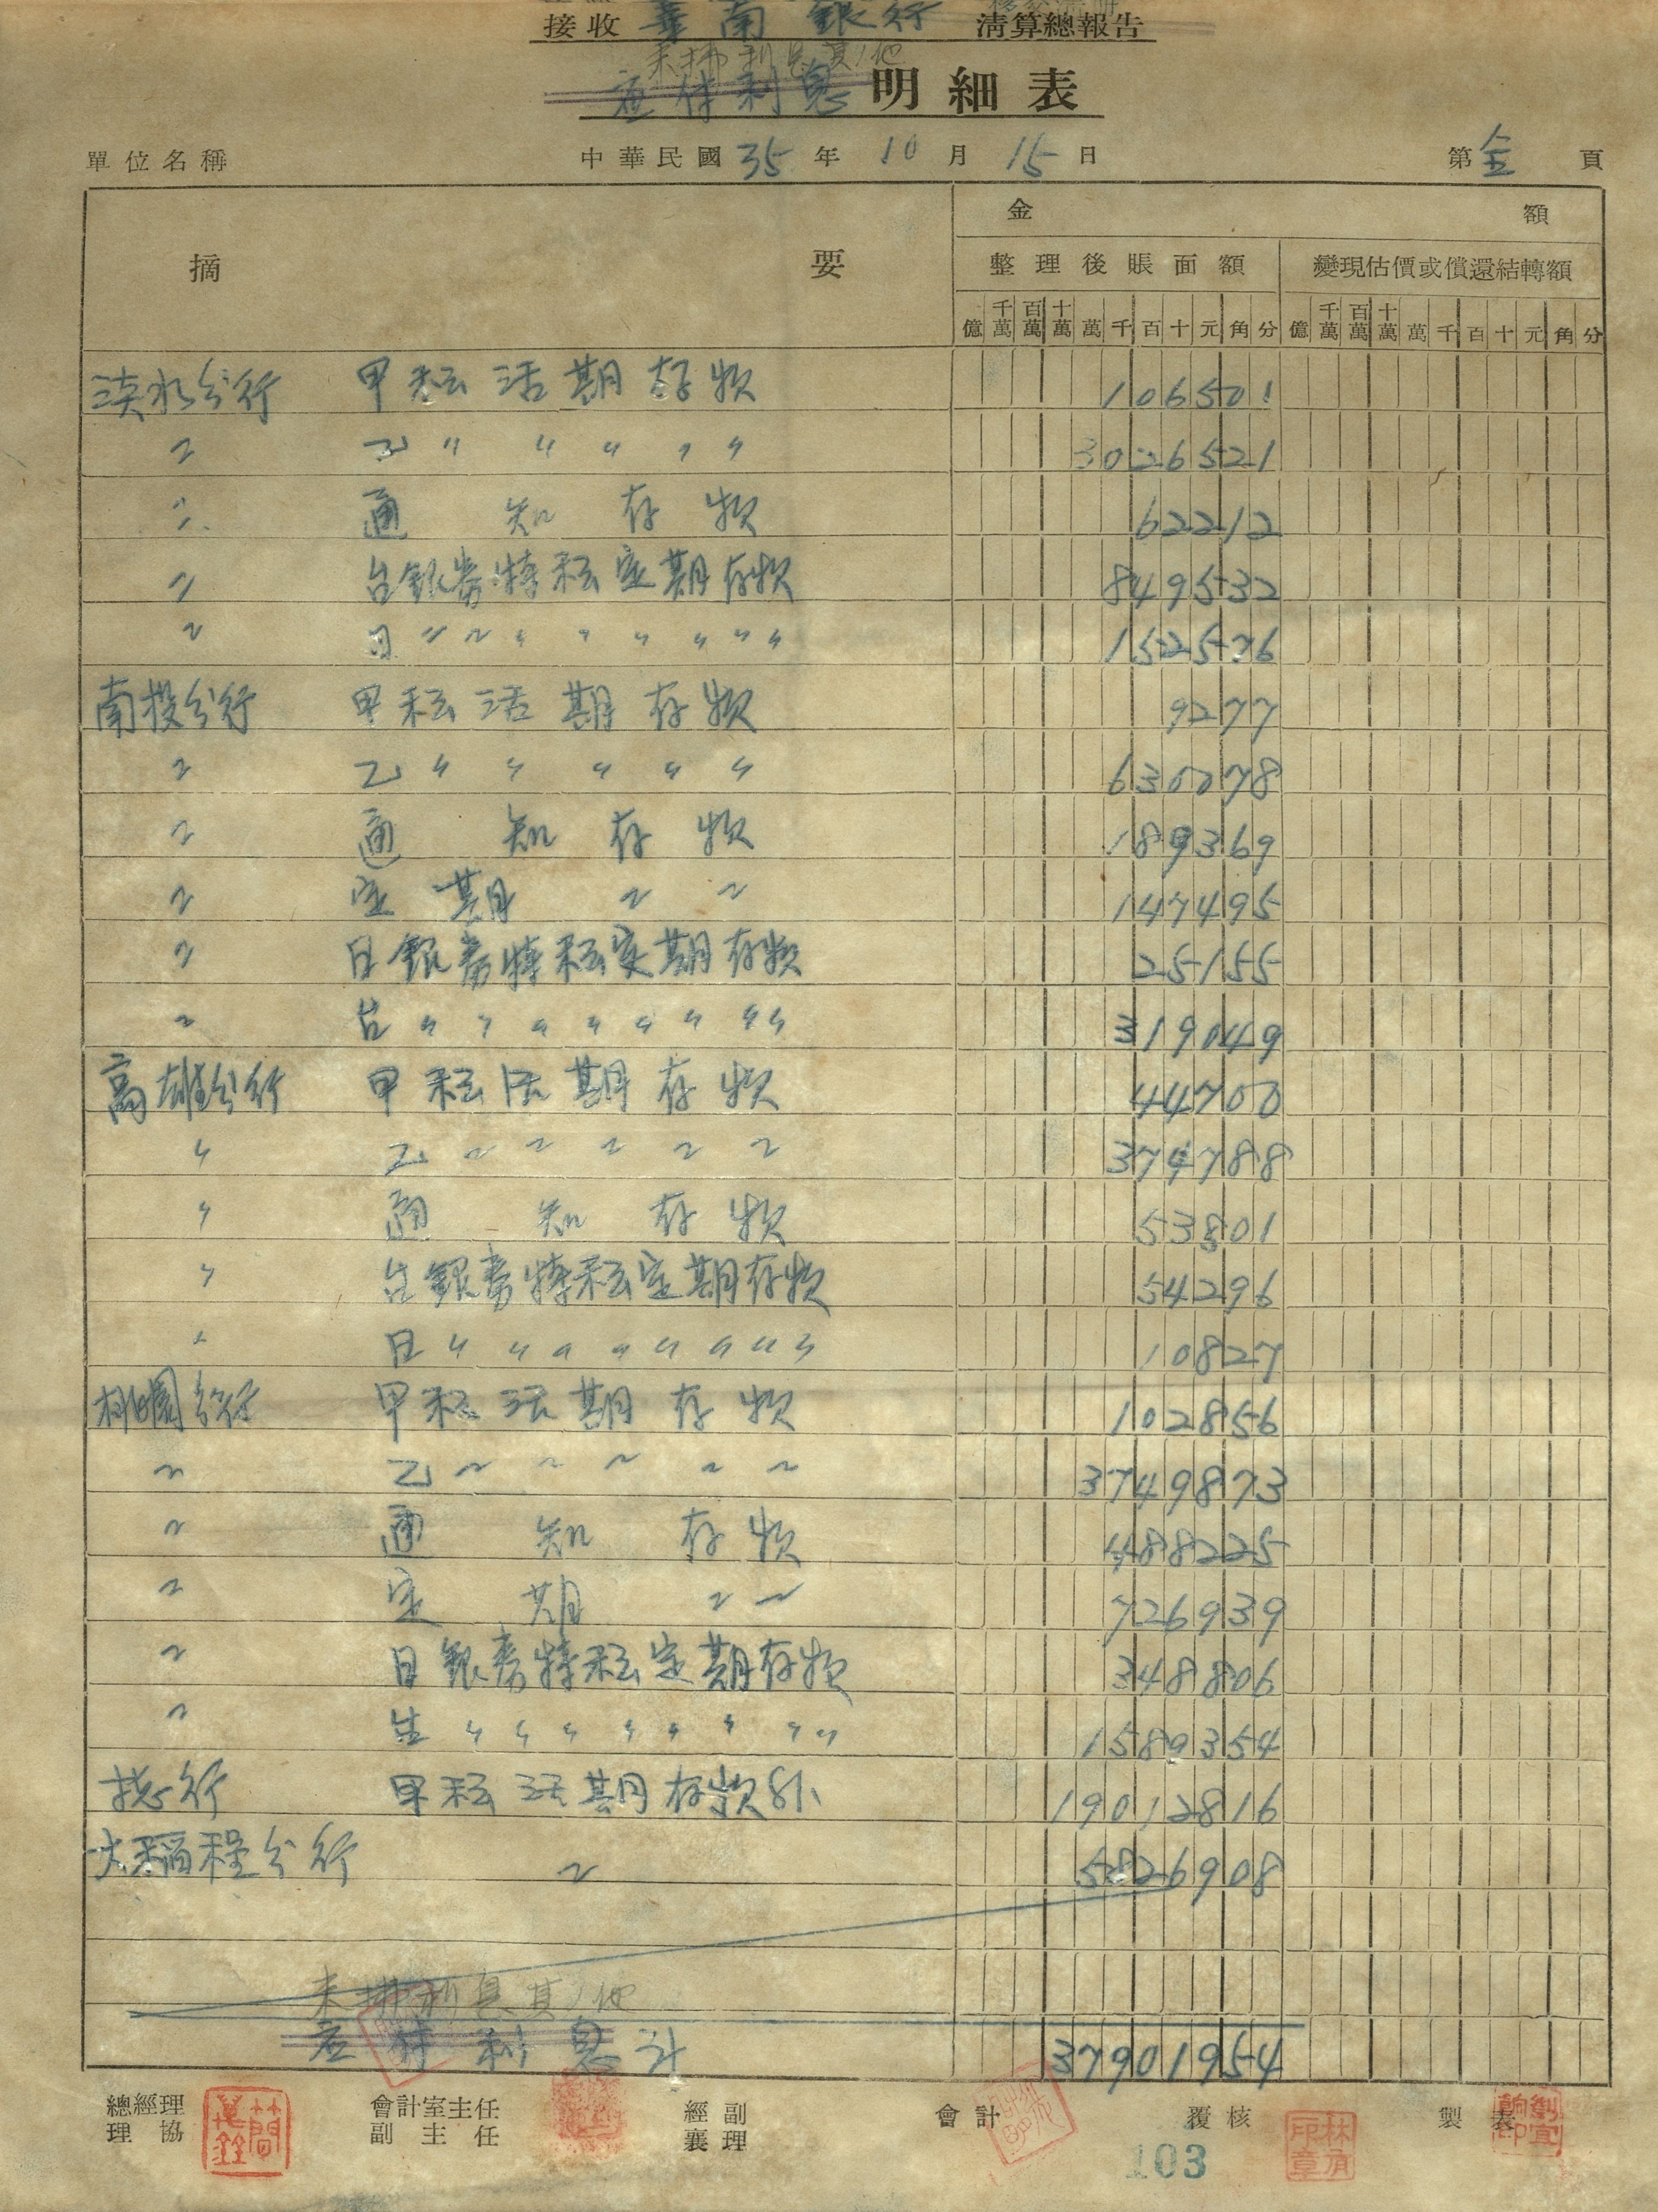 接收 華南銀行 清算總報告
未拂利息其ノ他
應付利息 明細表
單位名稱 中華民國 35 年 10 月 15 日 第 全 頁
摘 要 金 額
整理後賬面額 變現估價或償還結轉額
億 千萬 百萬 十萬 萬 千 百 十 元 角 分 億 千萬 百萬 十萬 萬 千 百 十 元 角 分
淡水分行 甲种活期存款 106501
〃 乙 〃 〃 〃 〃 〃 3026521
〃 通知存款 62212
〃 台銀券特种定期存款 849532
〃 日 〃 〃 〃 〃 〃 〃 〃 〃 152576
南投分行 甲种活期存款 9277
〃 乙 〃 〃 〃 〃 〃 630078
〃 通知存款 189369
〃 定期 〃 〃 147495
〃 日銀券特种定期存款 25155
〃 台 〃 〃 〃 〃 〃 〃 〃 〃 319049
高雄分行 甲种活期存款 44700
〃 乙 〃 〃 〃 〃 〃 374788
〃 通知存款 53801
〃 台銀券特种定期存款 54296
〃 日 〃 〃 〃 〃 〃 〃 〃 〃 10827
桃園分行 甲种活期存款 102856
〃 乙 〃 〃 〃 〃 〃 3749873
〃 通知存款 488225
〃 定期 〃 〃 726939
〃 日銀券特种定期存款 348806
〃 台 〃 〃 〃 〃 〃 〃 〃 〃 1589354
總行 甲种活期存款外 19012816
大稻埕分行 〃 5826908
未拂利息其ノ他
應付利息計 37901954
總經理 會計室主任 經副 會計 覆核 製表
理協 副主任 襄理
103